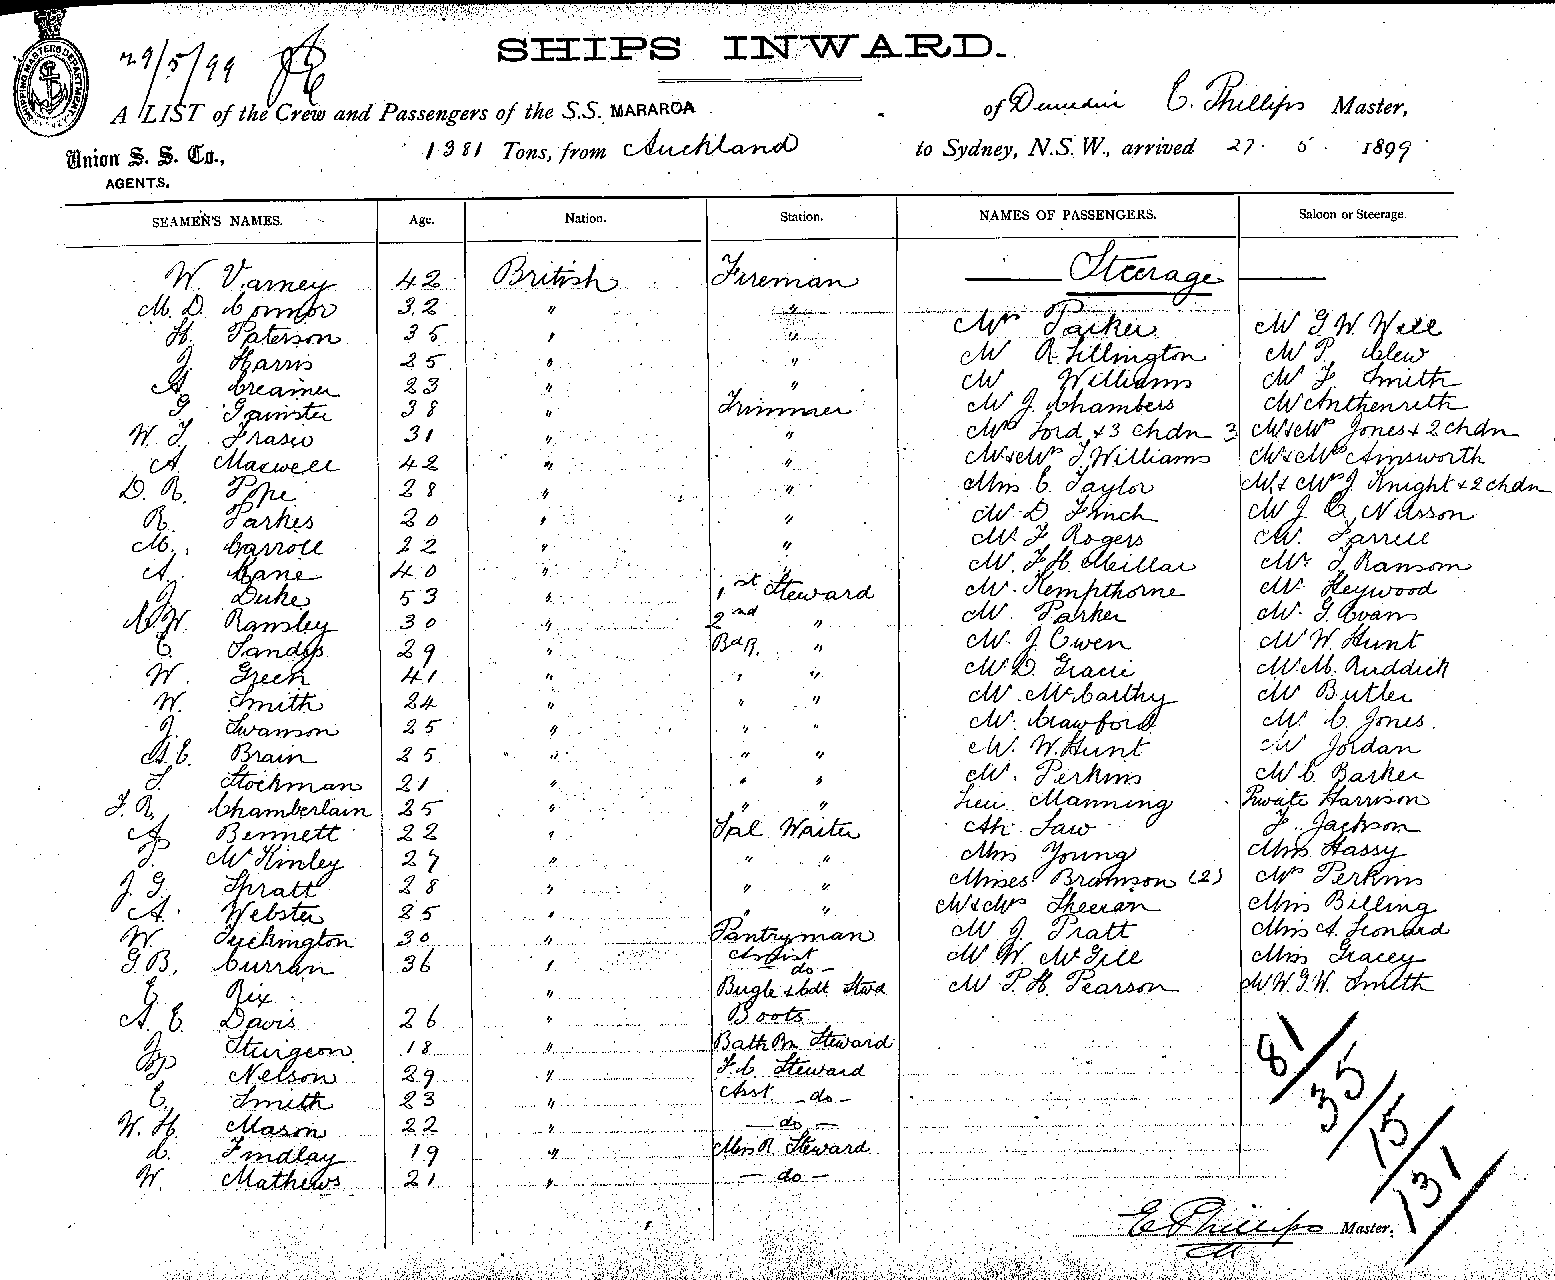 SHIPPING MASTERS DEPARTMENT
29/5/99
SHIPS INWARD.
A LIST of the Crew and Passengers of the S.S. MARAROA of Dunedin E. Phillips Master,
Union S. S. Co., AGENTS. 1381 Tons, from Auckland to Sydney, N.S.W., arrived 27. 5. 1899
SEAMEN'S NAMES. Age. Nation. Station. NAMES OF PASSENGERS. Saloon or Steerage.
W. Varney 42 British Fireman Steerage
M. D. Connor 32 " "
H. Paterson 35 " " Mrs Parker Mr G. W. Well
J. Harris 25 " " Mr R. Lillington Mr P. Clew
A. Creamer 23 " " Mr Williams Mr F. Smith
G. 38 " Trimmer Mr J. Chambers Mr Anthenreth
W. T. Fraser 31 " " Mrs Lord & 3 chdn 3 Mr & Mrs Jones & 2 chdn
A. Maxwell 42 " " Mr & Mrs T. Williams Mr & Mrs Ainsworth
D. R. Pope 28 " " Miss E. Taylor Mr & Mrs J. Knight & 2 chdn
R. Parkes 20 " " Mr D. Finch Mr J. C. Nilsson
M. Carroll 22 " " Mr F. Rogers Mr Farrell
A. Cane 40 " " Mr F. H. Meillar Mr T. Ransom
J. Duke 53 " 1st Steward Mr Kempthorne Mr Heywood
C. W. Ransley 30 " 2nd " Mr Parker Mr G. Evans
C. Sandys 29 " BdR. " Mr J. Owen Mr W. Hunt
W. Green 41 " " " Mr D. Gracie Mr M. Ruddick
W. Smith 24 " " Mr McCarthy Mr Butler
J. Swanson 25 " " " Mr Crawford Mr C. Jones.
A. E. Brain 25 " " " Mr W. Hunt Mr Jordan
T. Stockman 21 " " " Mr Perkins Mr C. Barker
F. R. Chamberlain 25 " " " Manning Private Harrison
A. Bennett 22 " Sal Waiter Ah Law F. Jackson
T. McKinley 27 " " " Miss Young Miss Hassy
J. G. Spratt 28 " " " Misses Bramson (2) Mrs Perkins
A. Webster 25 " " " Mr & Mrs Sheeran Miss Billing
W. Tuckington 30 " Pantryman Mr J. Pratt Miss A. Leonard
G. B. Curran 36 " Assist -do- Mr W. McGill Miss Gracey
E. Rix " Bugle & bdt Stwd Mr P. H. Pearson Mr W. G. W. Smith
A. E. Davis 26 " Boots
J. Sturgeon 18 " Bath Rm Steward
P. Nelson 29 " F. C. Steward
E. Smith 23 " Asst -do-
W. H. Mason 22 " -do-
L. Findlay 19 " Mess R Steward
W. Mathews 21 " -do-
81/
35/
15/
131/
E Phillips Master.